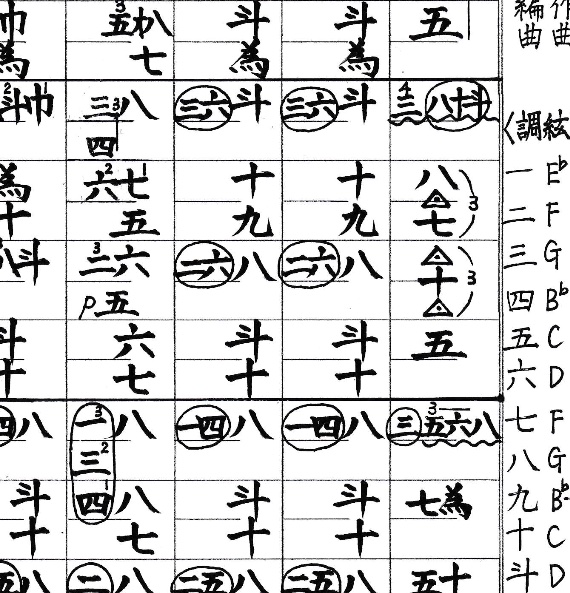 作曲
編曲
〈調絃
一 E♭
二 F
三 G
四 B♭
五 C
六 D
七 F
八 G
九 B♭
十 C
斗 D
五
4
三 八十斗
八
△
七
3
△
十
△
3
五
3
三 五六八
七為
五十
斗
為
三六 斗
十
九
二六 八
斗
十
一四 八
斗
十
二五 八
斗
為
三六 斗
十
九
二六 八
斗
十
一四 八
斗
十
二五 八
3
五 か
七
三 3 八
四
六 2 七 1
五
3
二 六
p 五
六
七
一 3 八
三 2
四 1 八
七
二 八
巾
為
2 1
斗巾
為
十
八斗
斗
十
四 八
斗
十
五 八